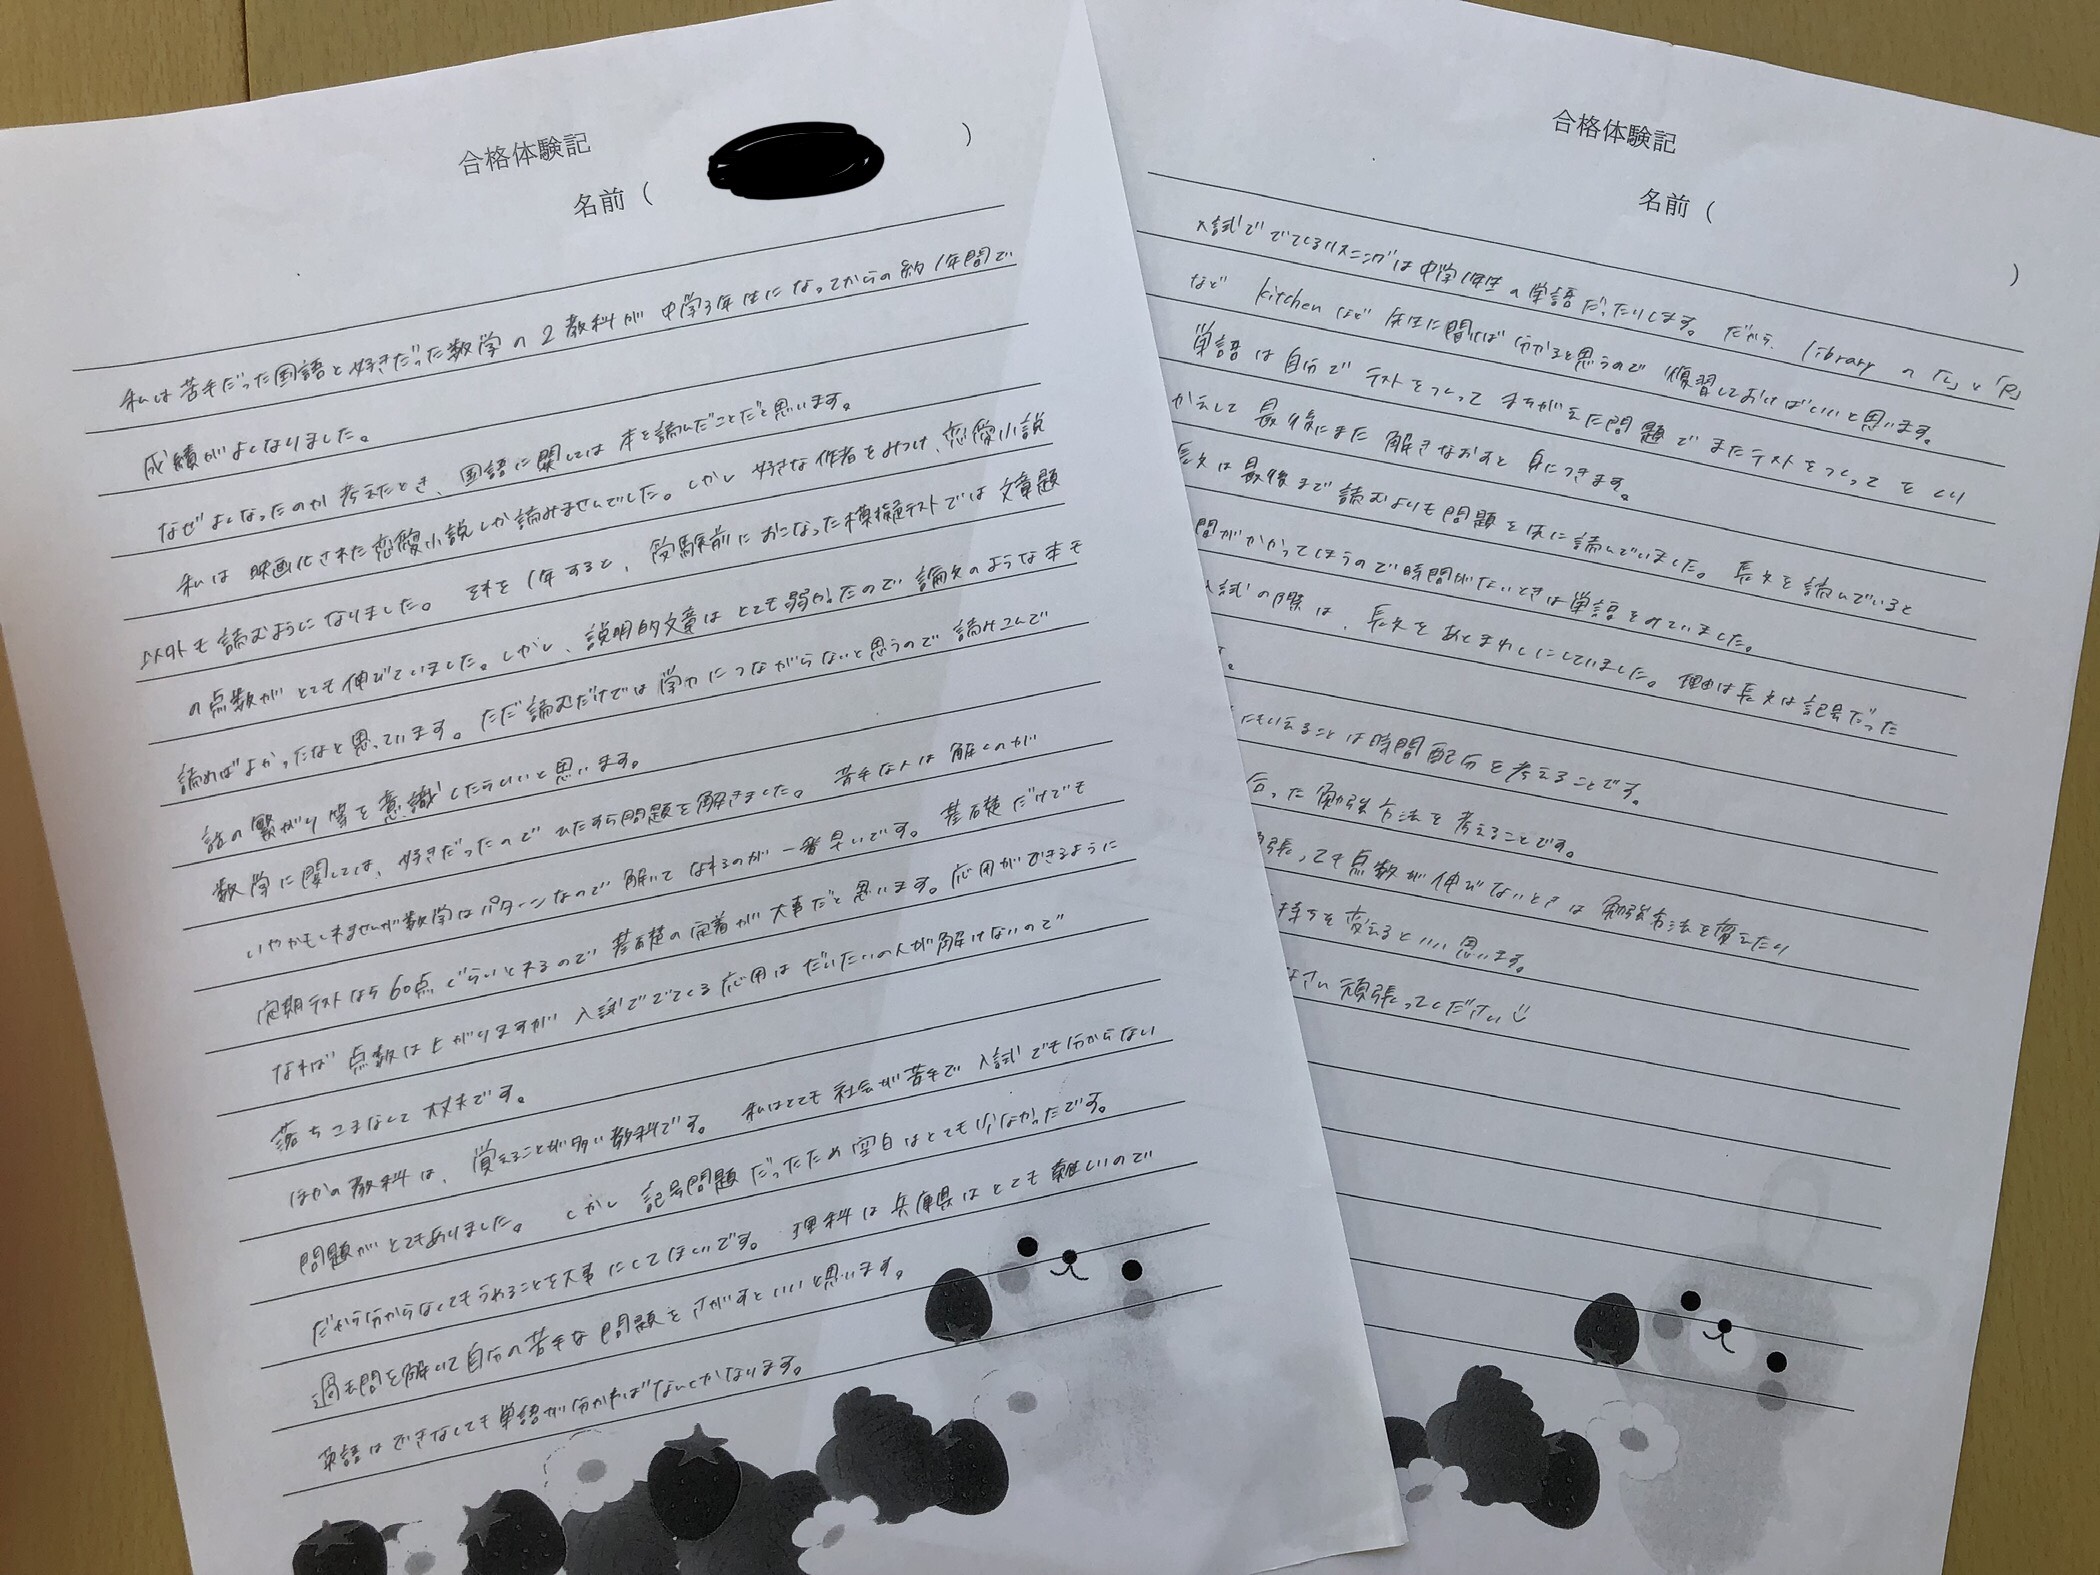 合格体験記
名前（ ）
私は苦手だった国語と好きだった数学の2教科が中学3年生になってからの約1年間で
成績がよくなりました。
なぜよくなったのか考えたとき、国語に関しては本を読んだことだと思います。
私は映画化された恋愛小説しか読みませんでした。しかし好きな作者をみつけ、恋愛小説
以外も読むようになりました。それを1年すると、受験前におこなった模擬テストでは文章題
の点数がとても伸びていました。しかし、説明的文章はとても弱かったので論文のような本も
読めばよかったなと思っています。ただ読むだけでは学力につながらないと思うので読みこんで
話の繋がり等を意識したらいいと思います。
数学に関しては、好きだったのでひたすら問題を解きました。苦手な人は解くのが
いやかもしれませんが数学はパターンなので解いてなれるのが一番早いです。基礎だけでも
定期テストなら60点ぐらいとれるので基礎の定着が大事だと思います。応用ができるように
なれば点数は上がりますが入試ででてくる応用はだいたいの人が解けないので
落ちこまなくて大丈夫です。
ほかの教科は、覚えることが多い教科です。私はとても社会が苦手で入試でも分からない
問題がとてもありました。しかし記号問題だったため空白はとても少なかったです。
だから分からなくてもうめることを大事にしてほしいです。理科は兵庫県はとても難しいので
過去問を解いて自分の苦手な問題をさがすといいと思います。
英語はできなくても単語が分かればなんとかなります。
合格体験記
名前（ ）
入試ででてくるリスニングは中学1年生の単語だったりします。だから、libraryの「L」と「R」
など kitchenなど先生に聞けば分かると思うので復習しておけばいいと思います。
単語は自分でテストをつくってまちがえた問題でまたテストをつくってをくり
かえして最後にまた解きなおすと身につきます。
長文は最後まで読むよりも問題を先に読んでいました。長文を読んでいると
間がかかってしまうので時間がないときは単語をみていました。
入試の際は、長文をあとまわしにしていました。理由は長文は記号だった
す。
にもいえることは時間配分を考えることです。
合った勉強方法を考えることです。
張っても点数が伸びないときは勉強方法を変えたり
持ちを変えるといい思います。
なさい頑張ってください